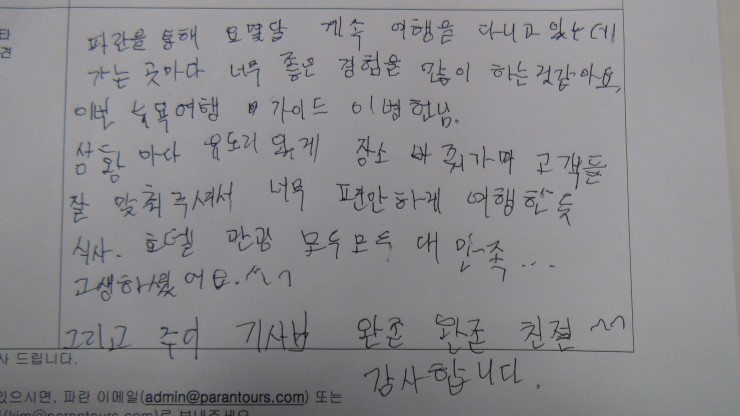 타
견
파란을 통해 요몇달 계속 여행을 다니고 있는데
가는 곳마다 너무 좋은 경험을 많이 하는것같아요,
이번 뉴욕여행 가이드 이병헌님.
상황마다 요도리 있게 장소 바꿔가며 고객들
잘 맞춰주셔서 너무 편안하게 여행한듯
식사. 호텔 관광 모두모두 대 만족...
고생하셨어요.^^
그리고 주여 기사님 완존 완존 친절 ^^
감사합니다.
사 드립니다.
있으시면, 파란 이메일(admin@parantours.com) 또는
(kim@parantours.com)로 보내주세요